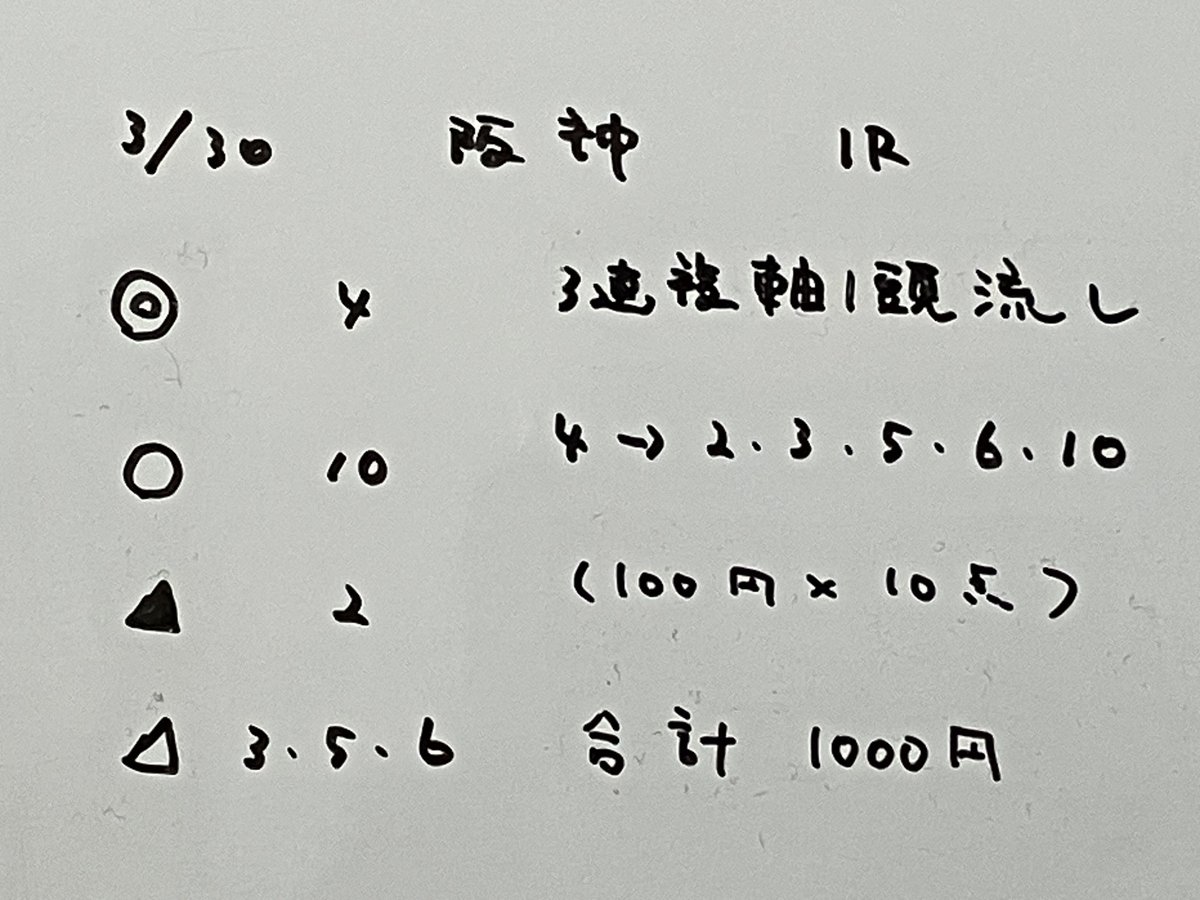 3/30 阪神 1R
◎ 4 3連複軸1頭流し
○ 10 4→2・3・5・6・10
▲ 2 (100円×10点)
△ 3・5・6 合計 1000円